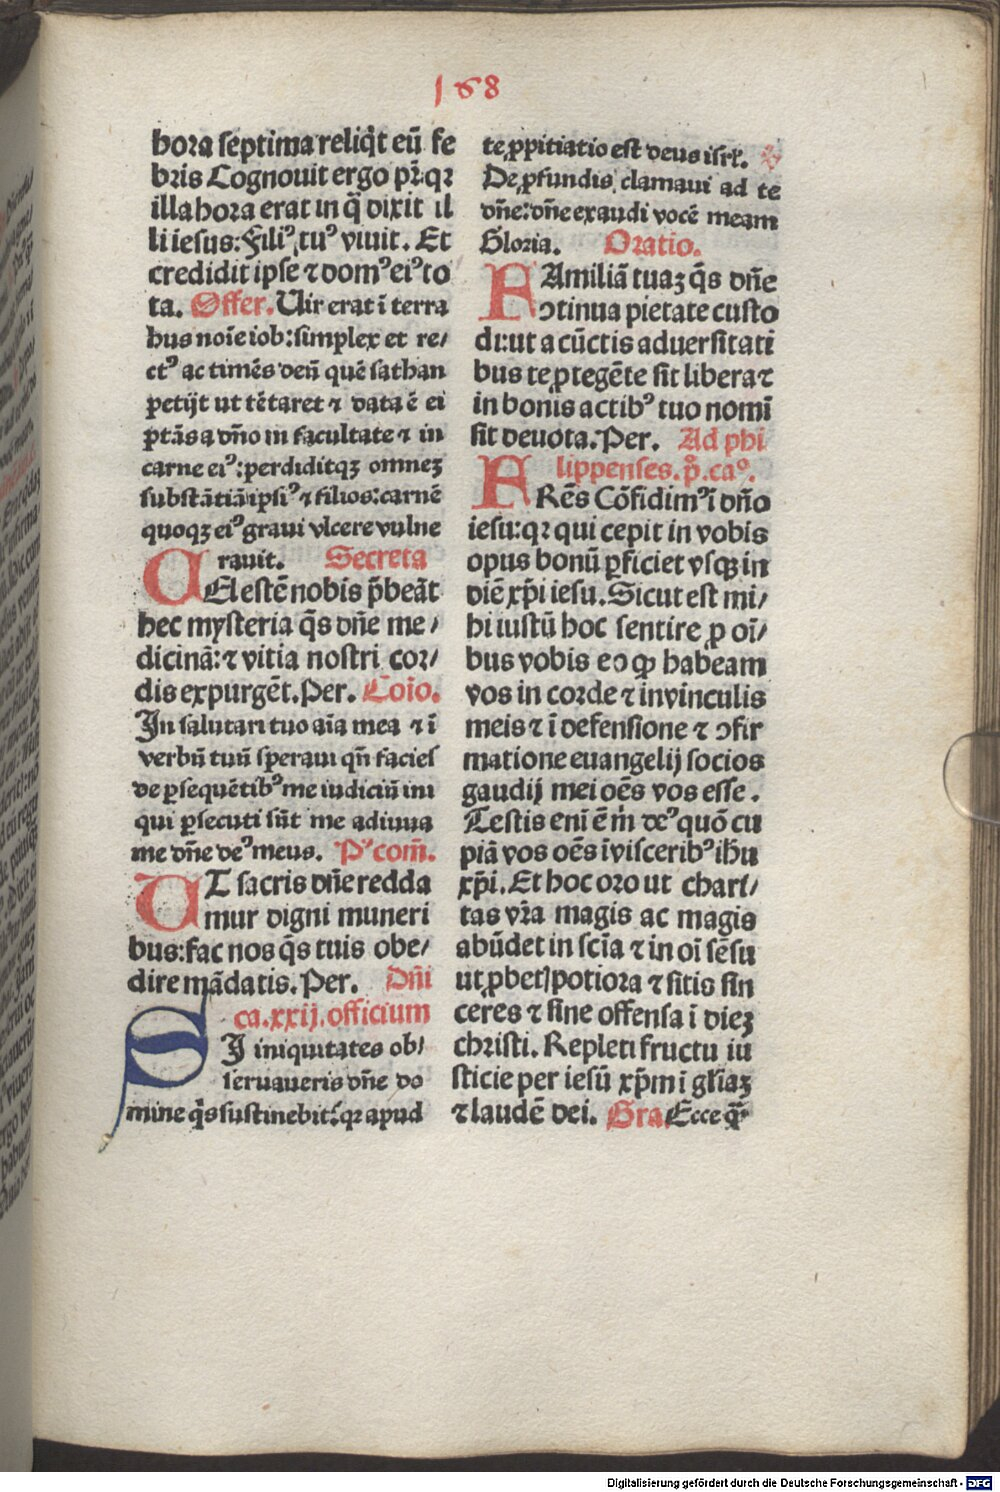 168
hora septima reliq̃t eũ fe
bris Cognouit ergo pr̃.qꝛ
illa hora erat in q̃ dixit il
li iesus: Filiꝰ tuꝰ viuit. Et
credidit ipse ⁊ domꝰ eiꝰ to
ta. Offer. Uir erat ĩ terra
hus noĩe iob: simplex et re/
ctꝰ ac timẽs deũ quẽ sathan
petijt ut tẽtaret ⁊ data ẽ ei
ptãs a dño in facultate ⁊ in
carne eiꝰ: perdiditqꝫ omnes
substãtiã ipsiꝰ ⁊ filios: carnẽ
quoqꝫ eiꝰ graui vlcere vulne
rauit. Secreta
CElestẽ nobis p̃beãt
hec mysteria q̃s dñe me/
dicinã: ⁊ vitia nostri cor/
dis expurgẽt. Per. Coĩo.
In salutari tuo aĩa mea ⁊ ĩ
verbũ tuũ speraui qñ facies
de ꝑsequẽtibꝰ me iudiciũ ini
qui ꝑsecuti sũt me adiuua
me dñe deꝰ meus. Pꝰ com̃.
UT sacris dñe redda
mur digni muneri
bus: fac nos q̃s tuis obe/
dire mãdatis. Per. Dñi
ca. xxij. officium
SI iniquitates ob/
seruaueris dñe do
mine q̃s sustinebit: qꝛ apud
te ꝓpitiatio est deus isrl̃.
De ꝓfundis clamaui ad te
dñe: dñe exaudi vocẽ meam
Gloria. Oratio.
FAmiliã tuaꝫ q̃s dñe
ↄtinua pietate custo
di: ut a cũctis aduersitati
bus te ꝓtegẽte sit libera ⁊
in bonis actibꝰ tuo nomĩ
sit deuota. Per. Ad phi
lippenses. p̃. caº.
FRẽs Cõfidimꝰ ĩ dño
iesu: qꝛ qui cepit in vobis
opus bonũ ꝑficiet vsqꝫ in
diẽ xp̃i iesu. Sicut est mi/
hi iustũ hoc sentire ꝓ oĩ/
bus vobis eo ꝙ habeam
vos in corde ⁊ in vinculis
meis ⁊ ĩ defensione ⁊ ↄfir
matione euangelij socios
gaudij mei oẽs vos esse.
Testis enĩ ẽ m̃ deꝰ quõ cu
piã vos oẽs ĩ visceribꝰ ih̃u
xp̃i. Et hoc oro ut chari/
tas vr̃a magis ac magis
abũdet in scĩa ⁊ in oĩ sẽsu
ut ꝓbet) potiora ⁊ sitis sin
ceres ⁊ sine offensa ĩ dieꝫ
christi. Repleti fructu iu
sticie per iesũ xp̃m ĩ gl̃iaꝫ
⁊ laudẽ dei. Gra. Ecce q̃
Digitalisierung gefördert durch die Deutsche Forschungsgemeinschaft - DFG